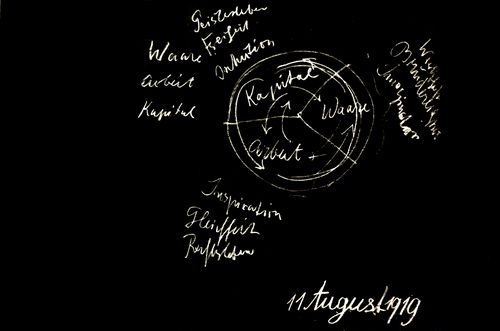 Geistesleben
Freiheit
Intuition
Waare
Arbeit
Kapital
Kapital
Waare
Arbeit
Brüderlichkeit
Imagination
Inspiration
Gleichheit
Rechtsleben
11 August. 1919